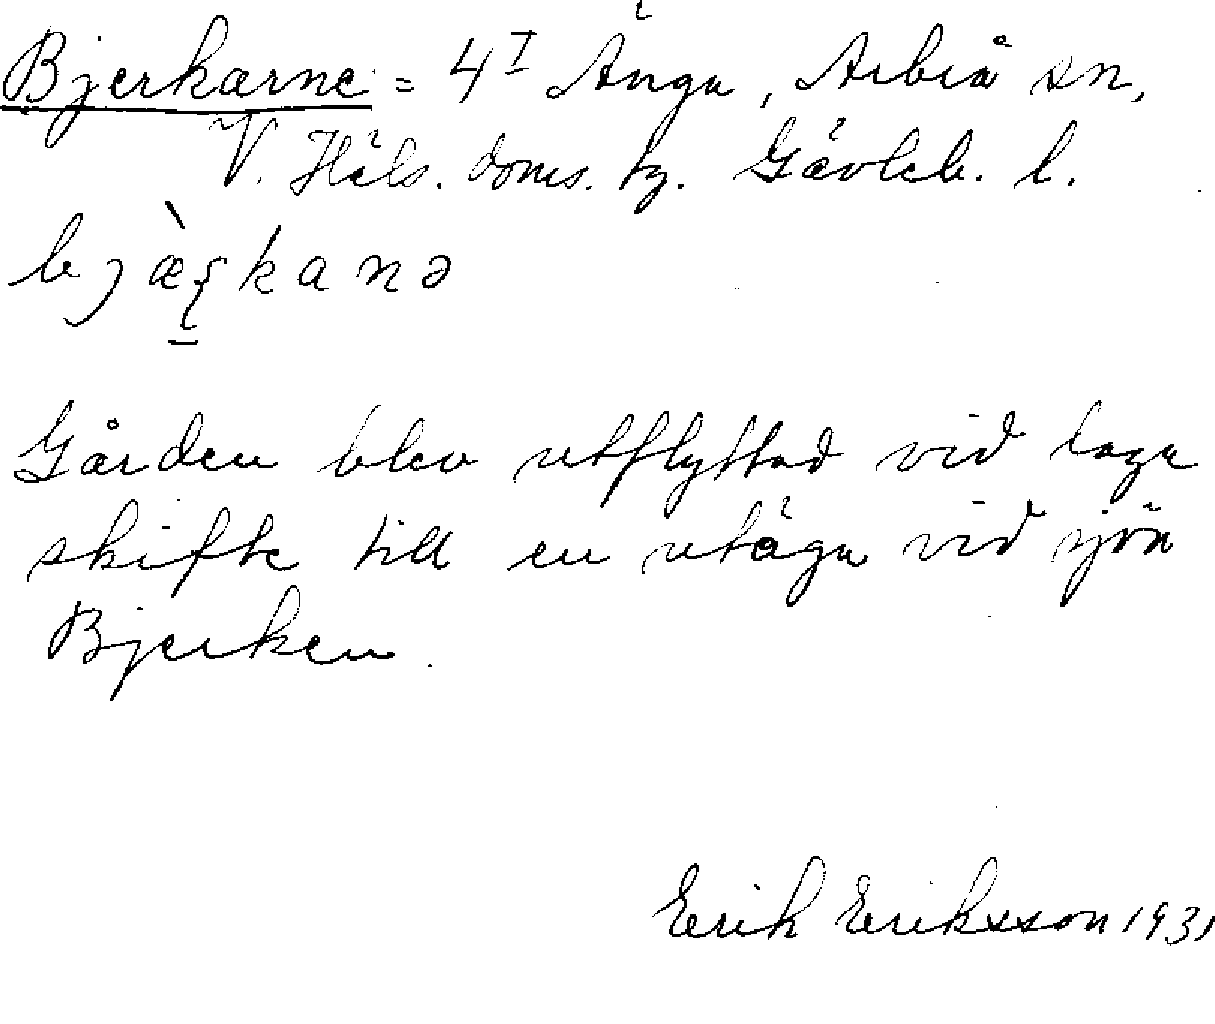 Bjerkarne = 4 I Änga, Arbrå sn,
V. Häls. doms. hz. Gävleb. l.
bjæ̀ʂkanə
Gården blev utflyttad vid laga
skifte till en utägu vid sjön
Bjerken.
Erik Eriksson 1931